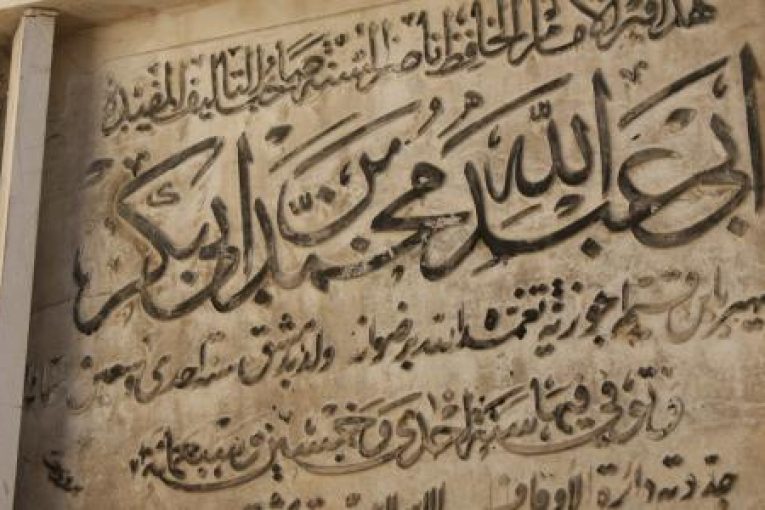 هذا قبر الامام الحافظ ناصر السنة صاحب التآليف المفيدة
ابي عبد الله محمد بن ابي بكر
الشهير بابن قيم الجوزية تغمده الله برضوانه ولد بدمشق سنة احدى وتسعين وستمائة
وتوفي فيها سنة احدى وخمسين وسبعمائة
جددته دائرة الاوقاف